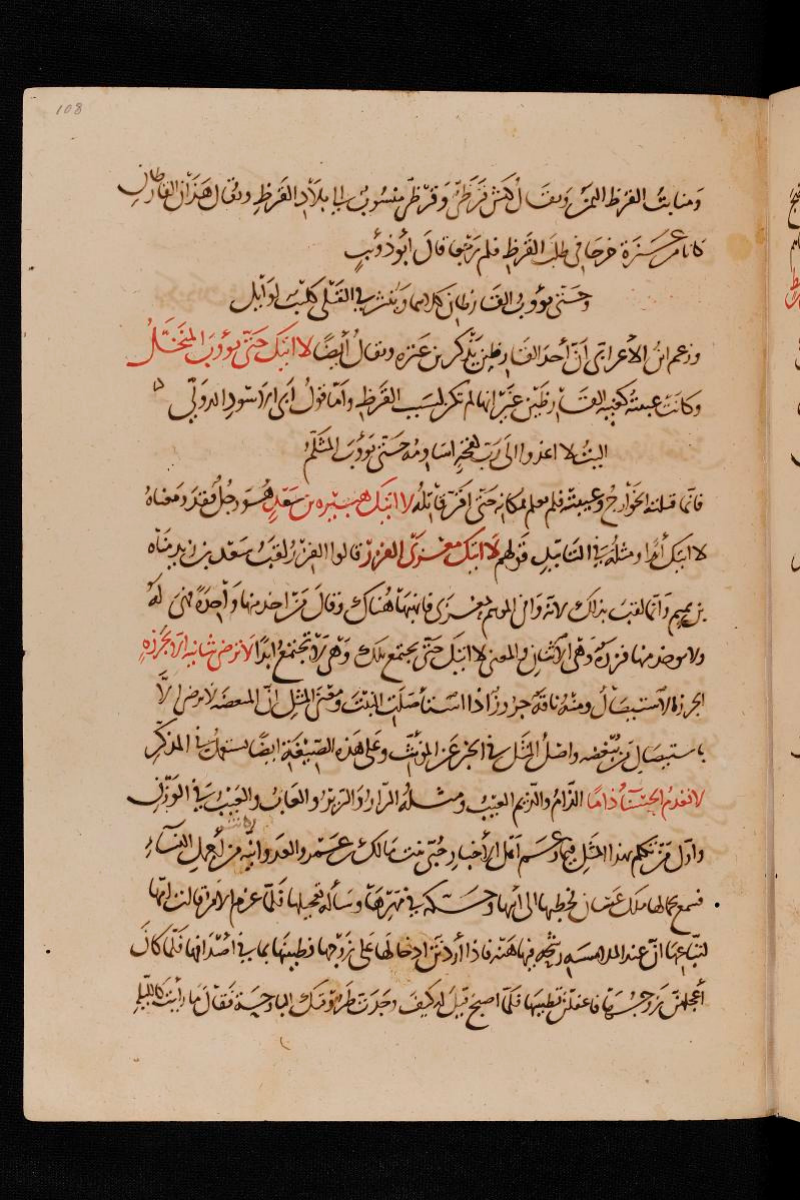 108
ومنابت القرظ اليمن ويقال كبش قرظي وقرظي منسوب الى بلاد القرظ ويقال هذان القارظان
كانا من عنزة خرجا في طلب القرظ فلم يرجعا قال ابو ذؤيب
وحتى يؤوب القارظان كلاهما وينشر في القتلى كليب لوائل
وزعم ابن الاعرابي ان احد القارظين يذكر بن عنزه ويقال ايضا لا اتيك حتى يؤوب المنخل
وكانت غيبته كغيبة القارظين غير انها لم تكن بسبب القرظ واما قول ابي الاسود الدولي
اليت لا اغدوا الى رب لقحه اساومه حتى يؤوب المثلم
فانما قتلته الخوارج وغيبته فلم يعلم بمكانه حتى اقر قاتله لا اتيك هبيره بن سعد هو رجل فقد ومعناه
لا اتيك ابدا ومثله في التابيد قولهم لا اتيك معزى الفزر قالوا الفزر لقب سعد بن زيد مناه
بن تميم وانما لقب بذلك لانه وافى الموسم بمعزى فانهبها هناك وقال من اخذ منها واحدة فهي له
ولا يوخذ منها فزر وهي الاثنان والمعنى لا اتيك حتى يجتمع تلك وهي لا تجتمع ابدا لا ترضى شانية الا بجرزه
الجرزة الاستيصال ومنه ناقة جروز اذا استاصلت النبت ومعنى المثل ان المبغضة لا ترضى الا
باستيصال من تبغضه واصل المثل في الخبر عن المونث وعلى هذه الصيغة ايضا يستعمل في المذكر
لا تعدم الحسناء ذاما الذام والذيم العيب ومثله الرار والرير والعاب والعيب في الوزن
واول من تكلم بهذا المثل فيما زعم اهل الاخبار حبى بنت مالك بن عمرو العدوانية وكانت من اجمل النساء
فسمع بجمالها ملك غسان فخطبها الى ابيها وحكمه في مهرها وساله تعجيلها فلما عزم الامر قالت امها
لتباعها ان عند الملامسه رشحة فيها هنة فاذا اردتن ادخالها على زوجها فطيبنها بما في اصدافها فلما كان
اعجلهن زوجها فاغفلن تطييبها فلما اصبح قيل له كيف وجدت طروقتك البارحة فقال ما رايت كالليلة